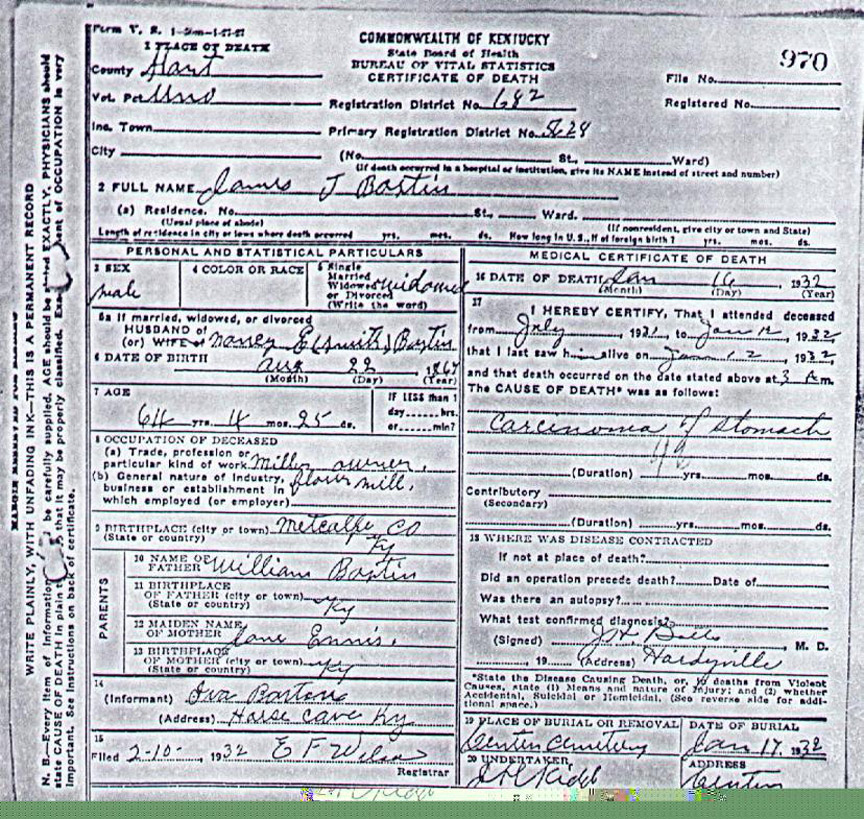 Form V. S. 1
COMMONWEALTH OF KENTUCKY
State Board of Health
BUREAU OF VITAL STATISTICS
CERTIFICATE OF DEATH
970
1 PLACE OF DEATH
County Hart
File No.
Vot. Pct. Uno
Registration District No. 682
Registered No.
Inc. Town
Primary Registration District No.
City
(No. St., Ward)
(If death occurred in a hospital or institution, give its NAME instead of street and number)
2 FULL NAME James J Bastin
(a) Residence. No. St., Ward.
(Usual place of abode) (If nonresident, give city or town and State)
Length of residence in city or town where death occurred yrs. mos. ds. How long in U. S., if of foreign birth? yrs. mos. ds.
PERSONAL AND STATISTICAL PARTICULARS
3 SEX
male
4 COLOR OR RACE
5 Single
Married
Widowed widowed
or Divorced
(Write the word)
5a If married, widowed, or divorced
HUSBAND of
(or) WIFE of Nancy E (Smith) Bastin
6 DATE OF BIRTH Aug 22 1867
(Month) (Day) (Year)
7 AGE
64 yrs. 4 mos. 25 ds.
IF LESS than 1
day hrs.
or min?
8 OCCUPATION OF DECEASED
(a) Trade, profession or
particular kind of work Mill owner,
(b) General nature of industry,
business or establishment in flour mill,
which employed (or employer)
9 BIRTHPLACE (city or town) Metcalfe Co
(State or country) Ky
PARENTS
10 NAME OF
FATHER William Bastin
11 BIRTHPLACE
OF FATHER (city or town)
(State or country) Ky
12 MAIDEN NAME
OF MOTHER Jane Ennis.
13 BIRTHPLACE
OF MOTHER (city or town) Ky
(State or country)
14
(Informant) Iva Bastin
(Address) Horse Cave Ky
15
Filed 2-10-, 1932 E F Wilson
Registrar
MEDICAL CERTIFICATE OF DEATH
16 DATE OF DEATH Jan 16, 1932
(Month) (Day) (Year)
17
I HEREBY CERTIFY, That I attended deceased
from July, 1931, to Jan 12, 1932,
that I last saw him alive on Jan 12, 1932,
and that death occurred on the date stated above at 3 A m.
The CAUSE OF DEATH* was as follows:
Carcinoma of Stomach
(Duration) yrs. mos. ds.
Contributory
(Secondary)
(Duration) yrs. mos. ds.
18 WHERE WAS DISEASE CONTRACTED
If not at place of death?
Did an operation precede death? Date of
Was there an autopsy?
What test confirmed diagnosis?
(Signed) M. D.
, 19 (Address) Hardyville
*State the Disease Causing Death, or, in deaths from Violent
Causes, state (1) Means and nature of Injury; and (2) whether
Accidental, Suicidal or Homicidal. (See reverse side for addi-
tional space.)
19 PLACE OF BURIAL OR REMOVAL
Center Cemetery
DATE OF BURIAL
Jan 17, 1932
20 UNDERTAKER
Kidd
ADDRESS
Center
MARGIN RESERVED FOR BINDING
WRITE PLAINLY, WITH UNFADING INK—THIS IS A PERMANENT RECORD
N. B.—Every item of information be carefully supplied. AGE should be EXACTLY. PHYSICIANS should
state CAUSE OF DEATH in plain that it may be properly classified. ent of OCCUPATION is very
important. See instructions on back of certificate.